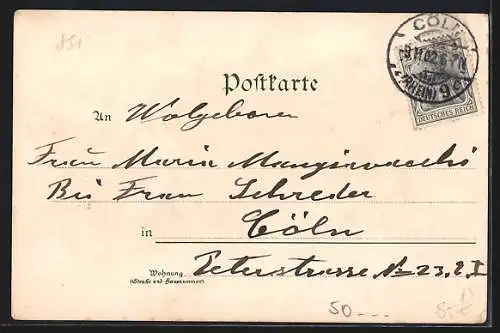 851
CÖLN
9.11.02.6-7N.
(RHEIN) 9
DEUTSCHES REICH
Postkarte
An Wolgeboren
Frau Maria
Bei Frau Schreder
in Cöln
Wohnung Peterstrasse No 23, 2, I
(Straße und Hausnummer)
50